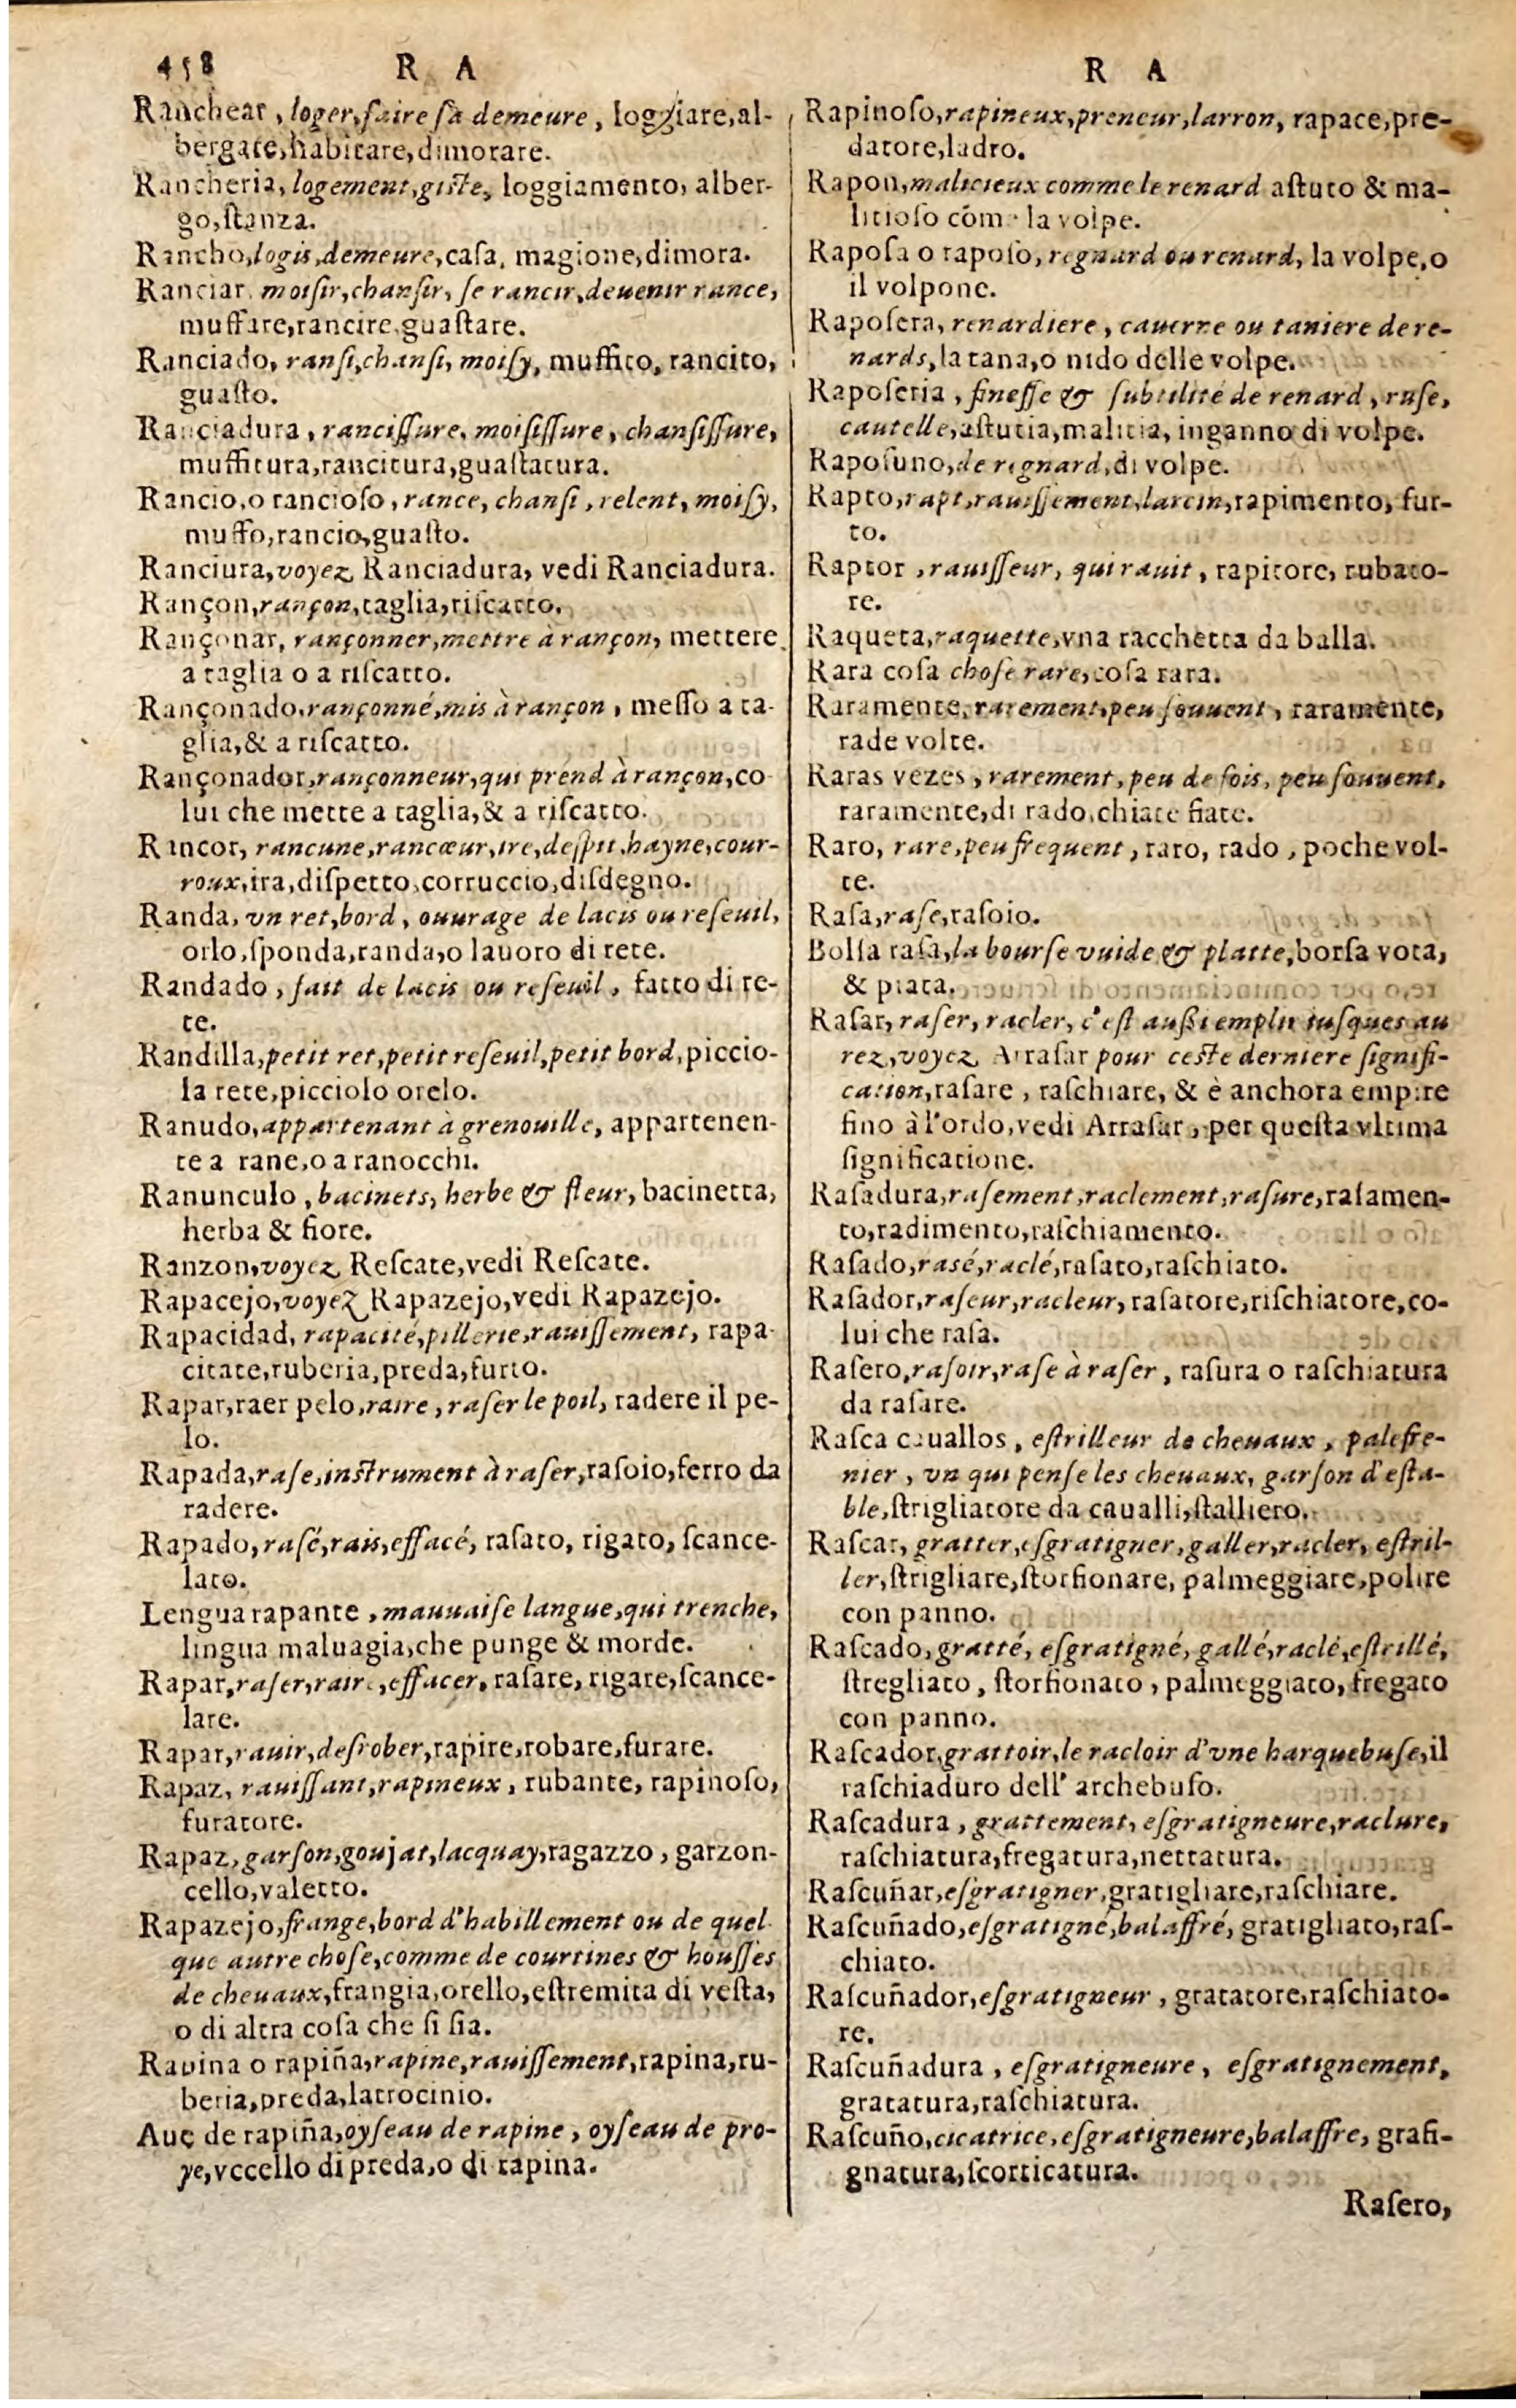 458 R A
Ranchear, loger, faire sa demeure, loggiare, al-
bergare, habitare, dimorare.
Rancheria, logement, giste, loggiamento, alber-
go, ſtanza.
Rancho, logis, demeure, caſa, magione, dimora.
Ranciar, moiſir, chanſir, ſe rancir, deuenir rance,
muffare, rancire, guaſtare.
Ranciado, ranſi, chanſi, moiſy, muffito, rancito,
guaſto.
Ranciadura, ranciſſure, moiſiſſure, chanſiſſure,
muffitura, rancitura, guaſtatura.
Rancio, o rancioſo, rance, chanſi, relent, moiſy,
muffo, rancio, guaſto.
Ranciura, voyez Ranciadura, vedi Ranciadura.
Rançon, rançon, taglia, riſcatto.
Rançonar, rançonner, mettre à rançon, mettere
a taglia o a riſcatto.
Rançonado, rançonné, mis à rançon, meſſo a ta-
glia, & a riſcatto.
Rançonador, rançonneur, qui prend à rançon, co
lui che mette a taglia, & a riſcatto.
Rancor, rancune, rancœur, ire, deſpit, hayne, cour-
roux, ira, diſpetto, corruccio, diſdegno.
Randa, vn ret, bord, ouurage de lacis ou reſeuil,
orlo, ſponda, randa, o lauoro di rete.
Randado, fait de lacis ou reſeuil, fatto di re-
te.
Randilla, petit ret, petit reſeuil, petit bord, piccio-
la rete, picciolo orelo.
Ranudo, appartenant à grenouille, appartenen-
te a rane, o a ranocchi.
Ranunculo, bacinets, herbe & fleur, bacinetta,
herba & fiore.
Ranzon, voyez Reſcate, vedi Reſcate.
Rapacejo, voyez Rapazejo, vedi Rapazejo.
Rapacidad, rapacité, pillerie, rauiſſement, rapa
citate, ruberia, preda, furto.
Rapar, raer pelo, raire, raſer le poil, radere il pe-
lo.
Rapada, raſe, inſtrument à raſer, raſoio, ferro da
radere.
Rapado, raſé, rais, effacé, raſato, rigato, ſcance-
lato.
Lengua rapante, mauuaiſe langue, qui trenche,
lingua maluagia, che punge & morde.
Rapar, raſer, raire, effacer, raſare, rigare, ſcance-
lare.
Rapar, rauir, deſrober, rapire, robare, furare.
Rapaz, rauiſſant, rapineux, rubante, rapinoſo,
furatore.
Rapaz, garſon, goujat, lacquay, ragazzo, garzon-
cello, valetto.
Rapazejo, frange, bord d'habillement ou de quel
que autre choſe, comme de courtines & houſſes
de cheuaux, frangia, orello, eſtremita di veſta,
o di altra coſa che ſi ſia.
Rapina o rapiña, rapine, rauiſſement, rapina, ru-
beria, preda, latrocinio.
Aue de rapiña, oyſeau de rapine, oyſeau de pro-
ye, vccello di preda, o di rapina.
R A
Rapinoſo, rapineux, preneur, larron, rapace, pre-
datore, ladro.
Rapon, malicieux comme le renard aſtuto & ma-
litioſo cóme la volpe.
Rapoſa o rapoſo, regnard ou renard, la volpe, o
il volpone.
Rapoſera, renardiere, cauerne ou taniere de re-
nards, la tana, o nido delle volpe.
Rapoſeria, fineſſe & ſubtilité de renard, ruſe,
cautelle, aſtutia, malitia, inganno di volpe.
Rapoſuno, de regnard, di volpe.
Rapto, rapt, rauiſſement, larcin, rapimento, fur-
to.
Raptor, rauiſſeur, qui rauit, rapitore, rubato-
re.
Raqueta, raquette, vna racchetta da balla.
Rara coſa choſe rare, coſa rara.
Raramente, rarement, peu ſouuent, raramente,
rade volte.
Raras vezes, rarement, peu de fois, peu ſouuent,
raramente, di rado, chiate fiate.
Raro, rare, peu frequent, raro, rado, poche vol-
te.
Raſa, raſe, raſoio.
Bolſa raſa, la bourſe vuide & platte, borſa vota,
& piata.
Raſar, raſer, racler, c'eſt auſſi emplir iuſques au
rez, voyez Arraſar pour ceſte derniere ſignifi-
cation, raſare, raſchiare, & è anchora empire
fino à l'ordo, vedi Arraſar, per queſta vltima
ſignificatione.
Raſadura, raſement, raclement, raſure, raſamen-
to, radimento, raſchiamento.
Raſado, rasé, raclé, raſato, raſchiato.
Raſador, raſeur, racleur, raſatore, riſchiatore, co-
lui che raſa.
Raſero, raſoir, raſe à raſer, raſura o raſchiatura
da raſare.
Raſca cauallos, eſtrilleur de cheuaux, palefre-
nier, vn qui penſe les cheuaux, garſon d'eſta-
ble, ſtrigliatore da caualli, ſtalliero.
Raſcar, gratter, eſgratigner, galler, racler, eſtril-
ler, ſtrigliare, ſtorfionare, palmeggiare, polire
con panno.
Raſcado, gratté, eſgratigné, gallé, raclé, eſtrillé,
ſtregliato, ſtorfionato, palmeggiato, fregato
con panno.
Raſcador, grattoir, le racloir d'vne harquebuſe, il
raſchiaduro dell' archebuſo.
Raſcadura, grattement, eſgratigneure, raclure,
raſchiatura, fregatura, nettatura.
Raſcuñar, eſgratigner, gratigliare, raſchiare.
Raſcuñado, eſgratigné, balaffré, gratigliato, raſ-
chiato.
Raſcuñador, eſgratigneur, gratatore, raſchiato-
re.
Raſcuñadura, eſgratigneure, eſgratignement,
gratatura, raſchiatura.
Raſcuño, cicatrice, eſgratigneure, balaffre, grafi-
gnatura, ſcorticatura.
Raſero,